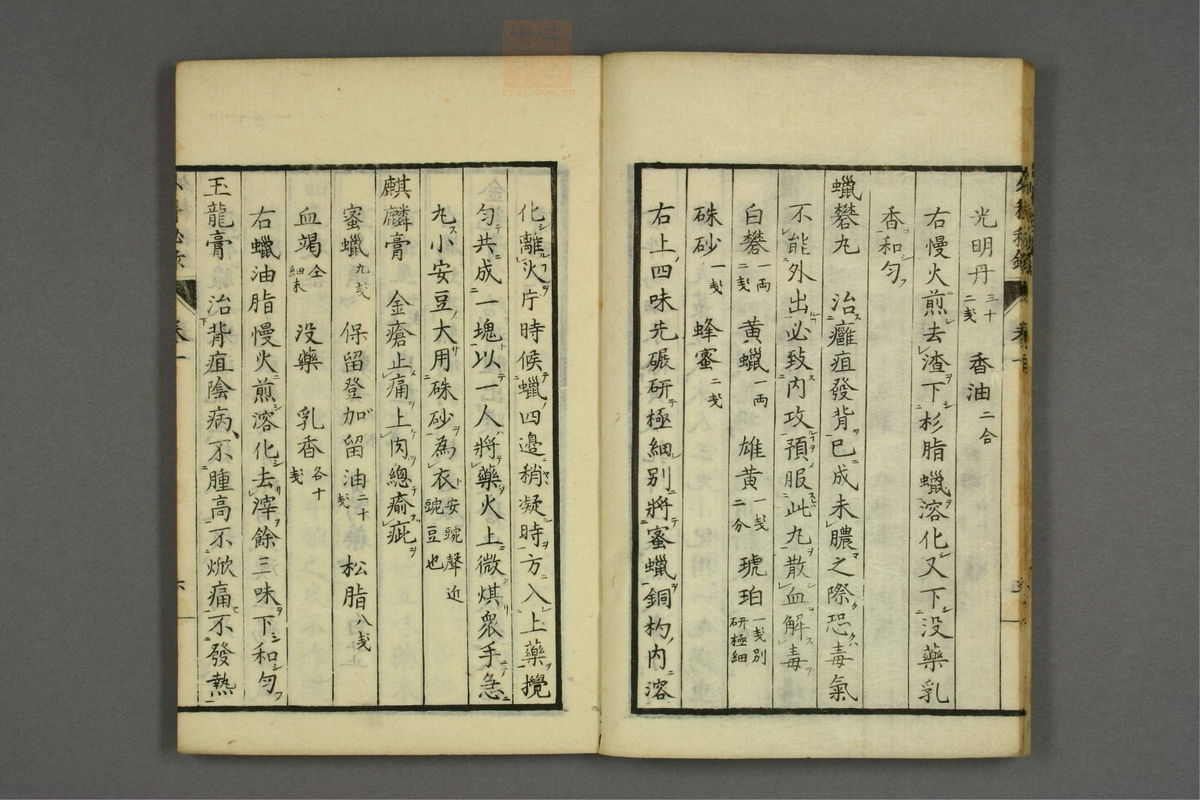 光明丹 三十二戔 香油 二合
右慢火煎去渣下杉脂蠟溶化又下没藥乳
香和匀
蠟礬丸 治癰疽發背已成未膿之際恐毒氣
不能外出必致内攻預服此丸散血解毒
白礬 一両二戔 黄蠟 一両 雄黄 一戔二分 琥珀 一戔別研極細
硃砂 一戔 蜂蜜 二戔
右上四味先碾研極細別將蜜蠟銅杓内溶
化離火片時候蠟四邊稍凝時方入上藥攪
匀共成一塊以一人將藥火上微熯衆手急
丸小安豆大用硃砂為衣 安豌聲近豌豆也
麒麟膏 金瘡止痛上肉總瘉疵
蜜蠟 九戔 保留登加留油 二十戔 松脂 八戔
血竭 仝細末 没藥 乳香 各十戔
右蠟油脂慢火煎溶化去滓餘三味下和匀
玉龍膏 治背疽陰病不腫高不焮痛不發熱